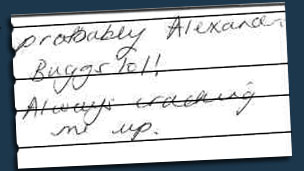 probabley Alexander
Buggs lol!
Always cracking
me up.